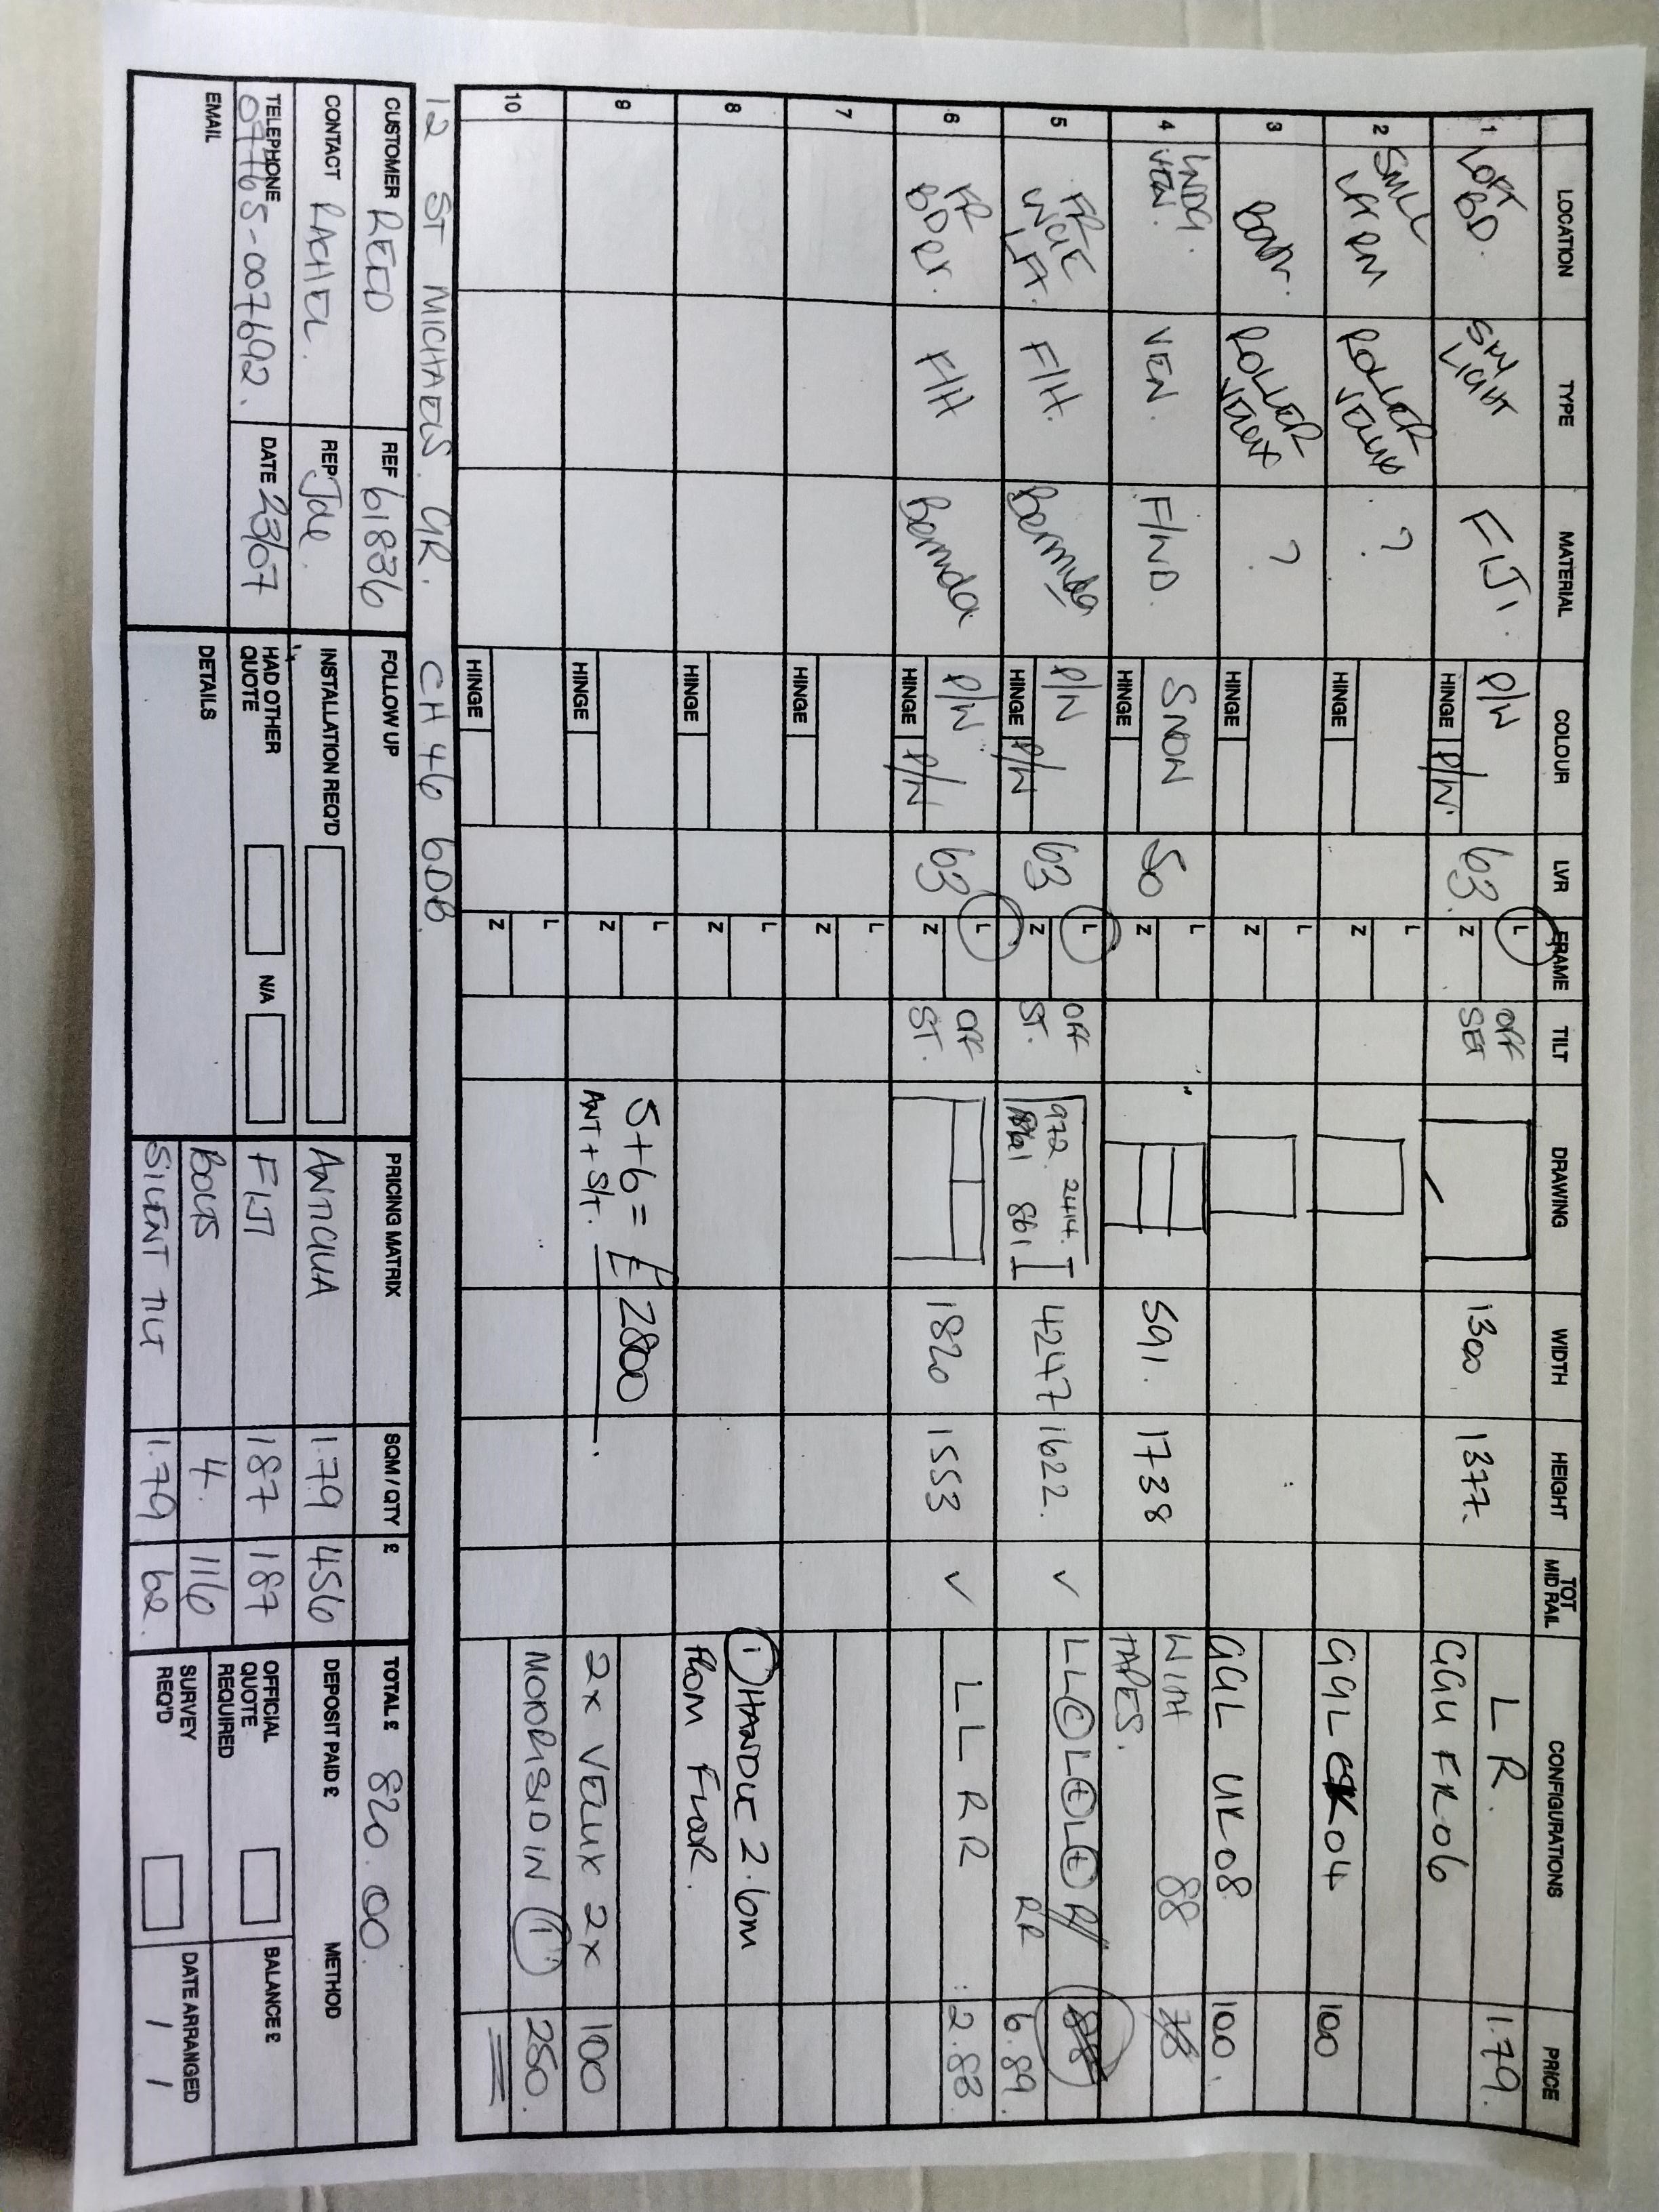 LOCATION TYPE MATERIAL COLOUR LVR FRAME TILT DRAWING WIDTH HEIGHT TOT MID RAIL CONFIGURATIONS PRICE
1 LOFT BD. SKY LIGHT FIJI. P/W HINGE P/W 63. L Z OFF SET 1300 1377. L R. 1.79.
GGU FK06
2 SMLL LFT RM ROLLER VELUX ? HINGE L Z GGL CK04 100
3 BDR. ROLLER VELUX ? HINGE L Z GGL UK08 100.
4 LNDG. VEN. VEN. F/WD. SNOW HINGE 50 L Z 591. 1738 WITH 88
TAPES.
5 FR LNGE LFT. F/H. Bermuda P/W HINGE P/W 63 L Z OFF ST. 972. 2414. 861 4247 1622. ✓ L L t L t L t R
RR 6.89.
6 FR BD RT. F/H Bermuda P/W HINGE P/W 63 L Z OFF ST. 1820 1553 ✓ L L R R 2.83.
7 HINGE L Z
8 HINGE L Z 1 HANDLE 2.6m
FROM FLOOR.
9 HINGE L Z 5+6 = £2800
ANT + S/T.
2x VELUX 2x 100
10 HINGE L Z MOTORISED IN 1 250.
12 ST MICHAELS GR. CH46 6DB.
CUSTOMER REED REF 61836 FOLLOW UP PRICING MATRIX SQM / QTY £ TOTAL £ 820.00
CONTACT RACHEL. REP Jae. INSTALLATION REQ'D ANTIGUA 1.79 456 DEPOSIT PAID £ METHOD
TELEPHONE 07765-007692. DATE 23/07 HAD OTHER QUOTE N/A FIJI 187 187 OFFICIAL QUOTE REQUIRED BALANCE £
EMAIL DETAILS BOLTS 4. 116 SURVEY REQ'D DATE ARRANGED / /
SILENT TILT 1.79 62.